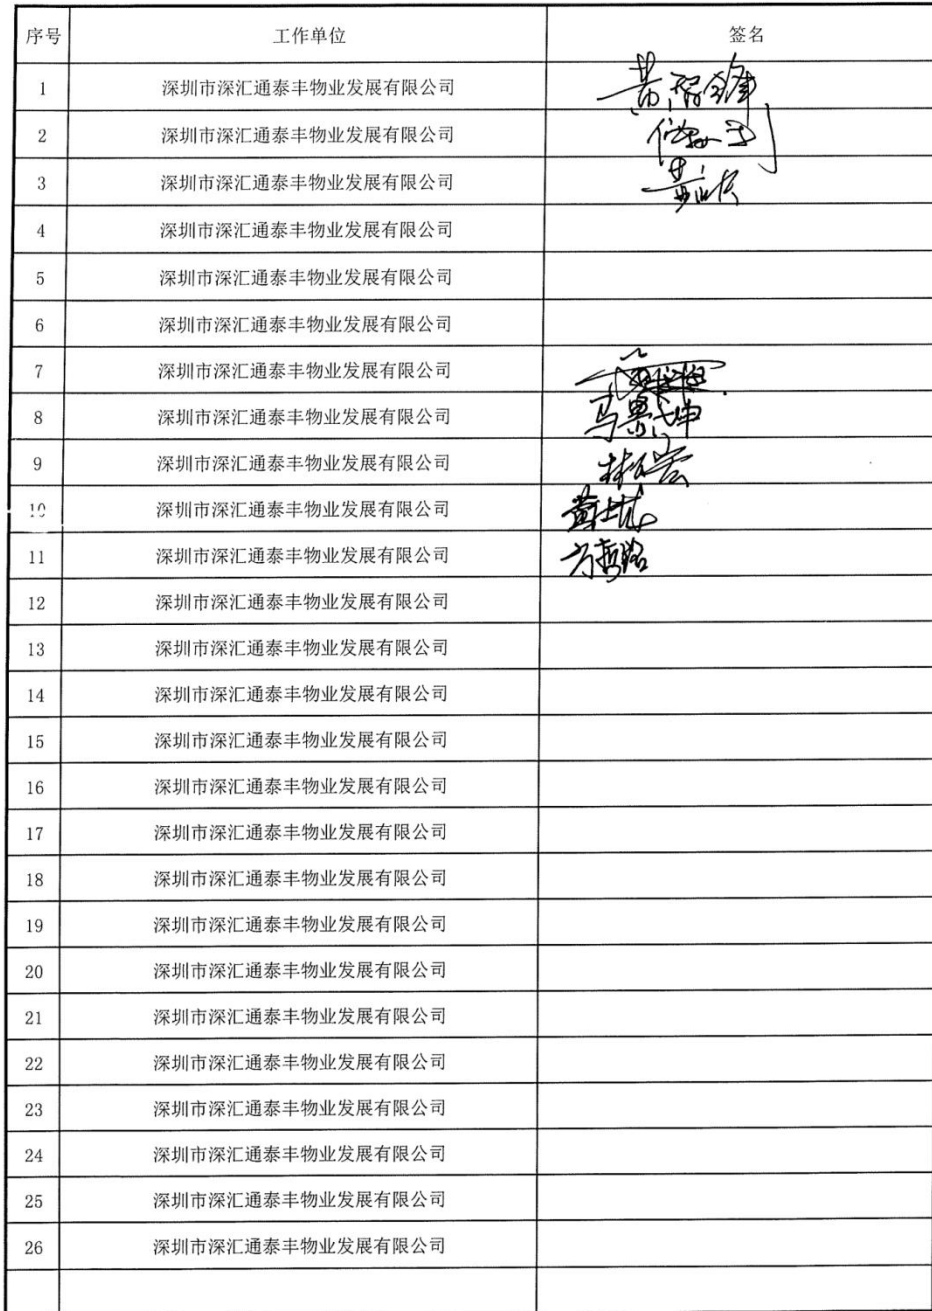 序号 工作单位 签名
1 深圳市深汇通泰丰物业发展有限公司 黄智锋
2 深圳市深汇通泰丰物业发展有限公司
3 深圳市深汇通泰丰物业发展有限公司
4 深圳市深汇通泰丰物业发展有限公司
5 深圳市深汇通泰丰物业发展有限公司
6 深圳市深汇通泰丰物业发展有限公司
7 深圳市深汇通泰丰物业发展有限公司
8 深圳市深汇通泰丰物业发展有限公司
9 深圳市深汇通泰丰物业发展有限公司
10 深圳市深汇通泰丰物业发展有限公司
11 深圳市深汇通泰丰物业发展有限公司
12 深圳市深汇通泰丰物业发展有限公司
13 深圳市深汇通泰丰物业发展有限公司
14 深圳市深汇通泰丰物业发展有限公司
15 深圳市深汇通泰丰物业发展有限公司
16 深圳市深汇通泰丰物业发展有限公司
17 深圳市深汇通泰丰物业发展有限公司
18 深圳市深汇通泰丰物业发展有限公司
19 深圳市深汇通泰丰物业发展有限公司
20 深圳市深汇通泰丰物业发展有限公司
21 深圳市深汇通泰丰物业发展有限公司
22 深圳市深汇通泰丰物业发展有限公司
23 深圳市深汇通泰丰物业发展有限公司
24 深圳市深汇通泰丰物业发展有限公司
25 深圳市深汇通泰丰物业发展有限公司
26 深圳市深汇通泰丰物业发展有限公司